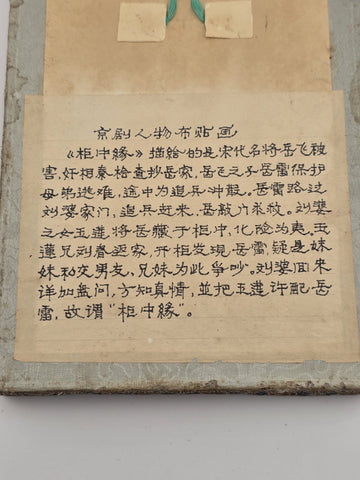 京剧人物布贴画
《柜中緣》描绘的是宋代名将岳飞被
害，奸相秦桧查抄岳家，岳飞之子岳雷保护
母弟逃难，途中为追兵冲散。岳雷路过
刘婆家门，追兵赶来，岳敲门求救。刘婆
之女玉莲将岳藏于柜中，化险为夷，玉
莲兄刘春返家，开柜发現岳雷，疑是妹
妹私交男友，兄妹为此爭吵。刘婆回来
详加盘问，方知真情，並把玉莲许配岳
雷，故谓"柜中緣"。